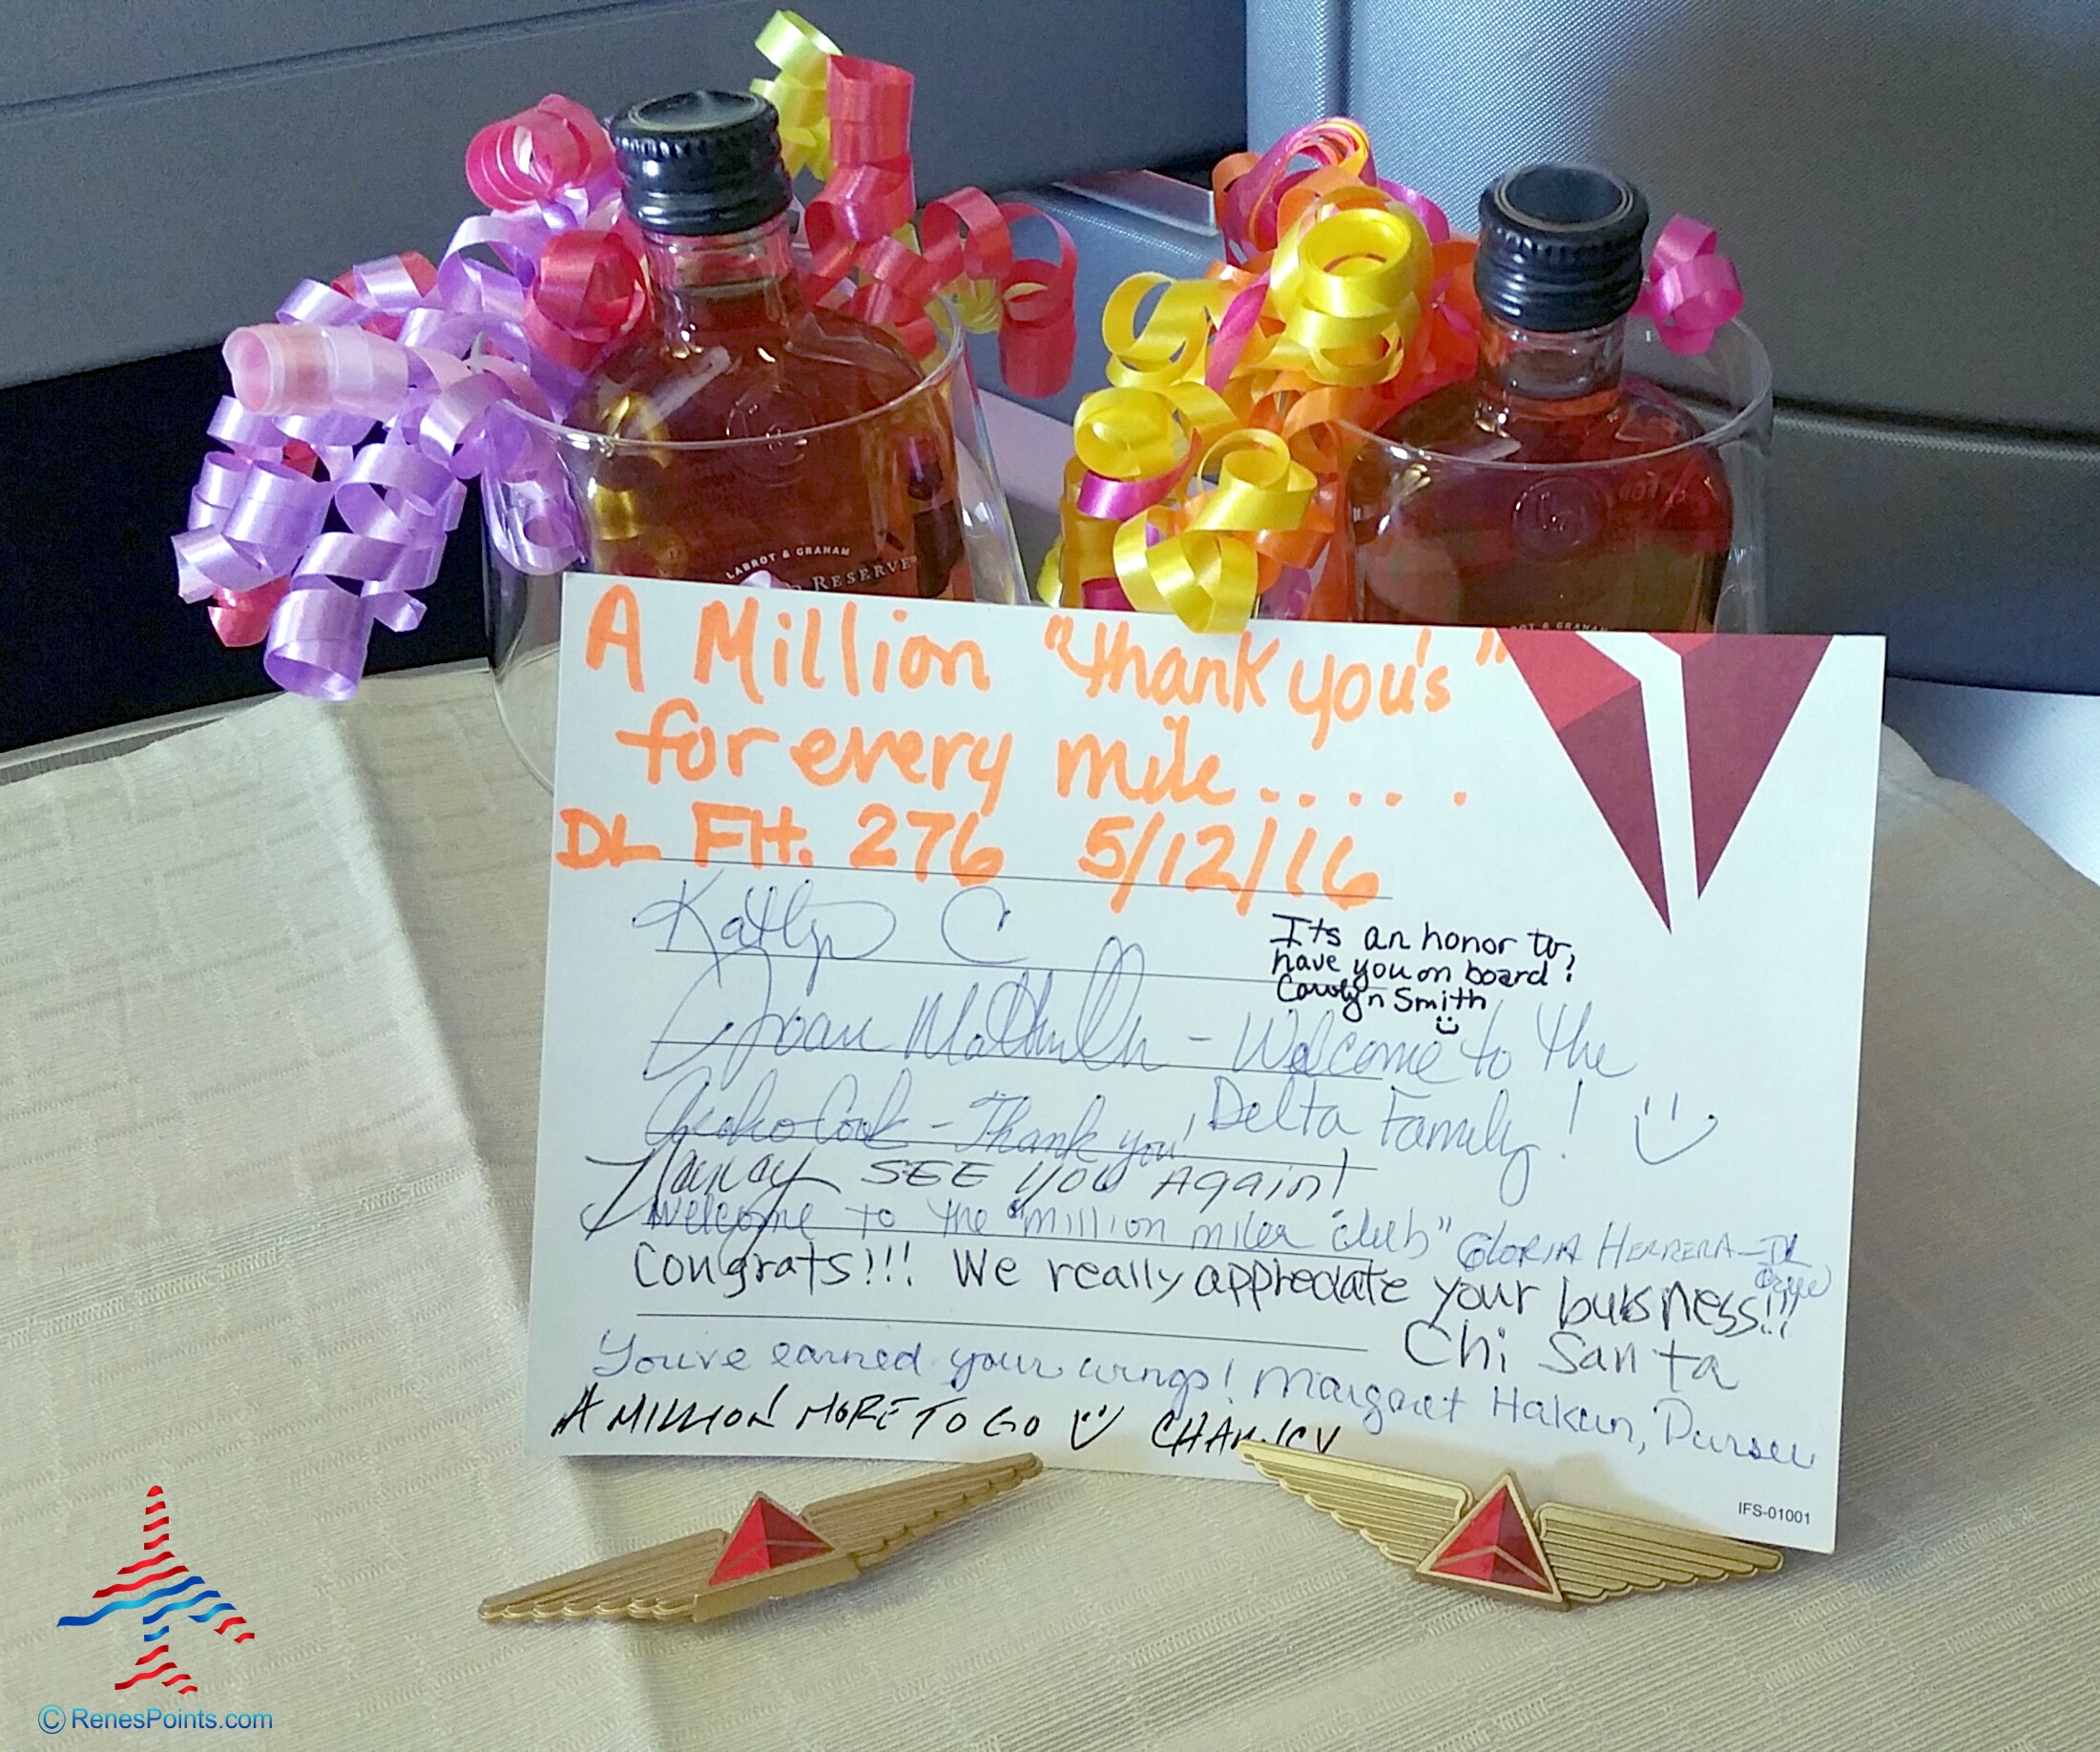 LABROT & GRAHAM
RESERVE
LABROT & GRAHAM
A Million "thank you's"
for every mile.....
DL Flt. 276 5/12/16
Katlyn C
Its an honor to
have you on board!
Carolyn Smith
Joan - Welcome to the
Delta Family!
Cook - Thank you!
Nancy SEE YOU AGAIN!
Welcome to the "million miler club" GLORIA HERRERA - DL
Crew
Congrats!!! We really appreciate your business!!!
Chi Santa
You've earned your wings! Margaret Hakun, Purser
A MILLION MORE TO GO CHAUNCY
IFS-01001
© RenesPoints.com